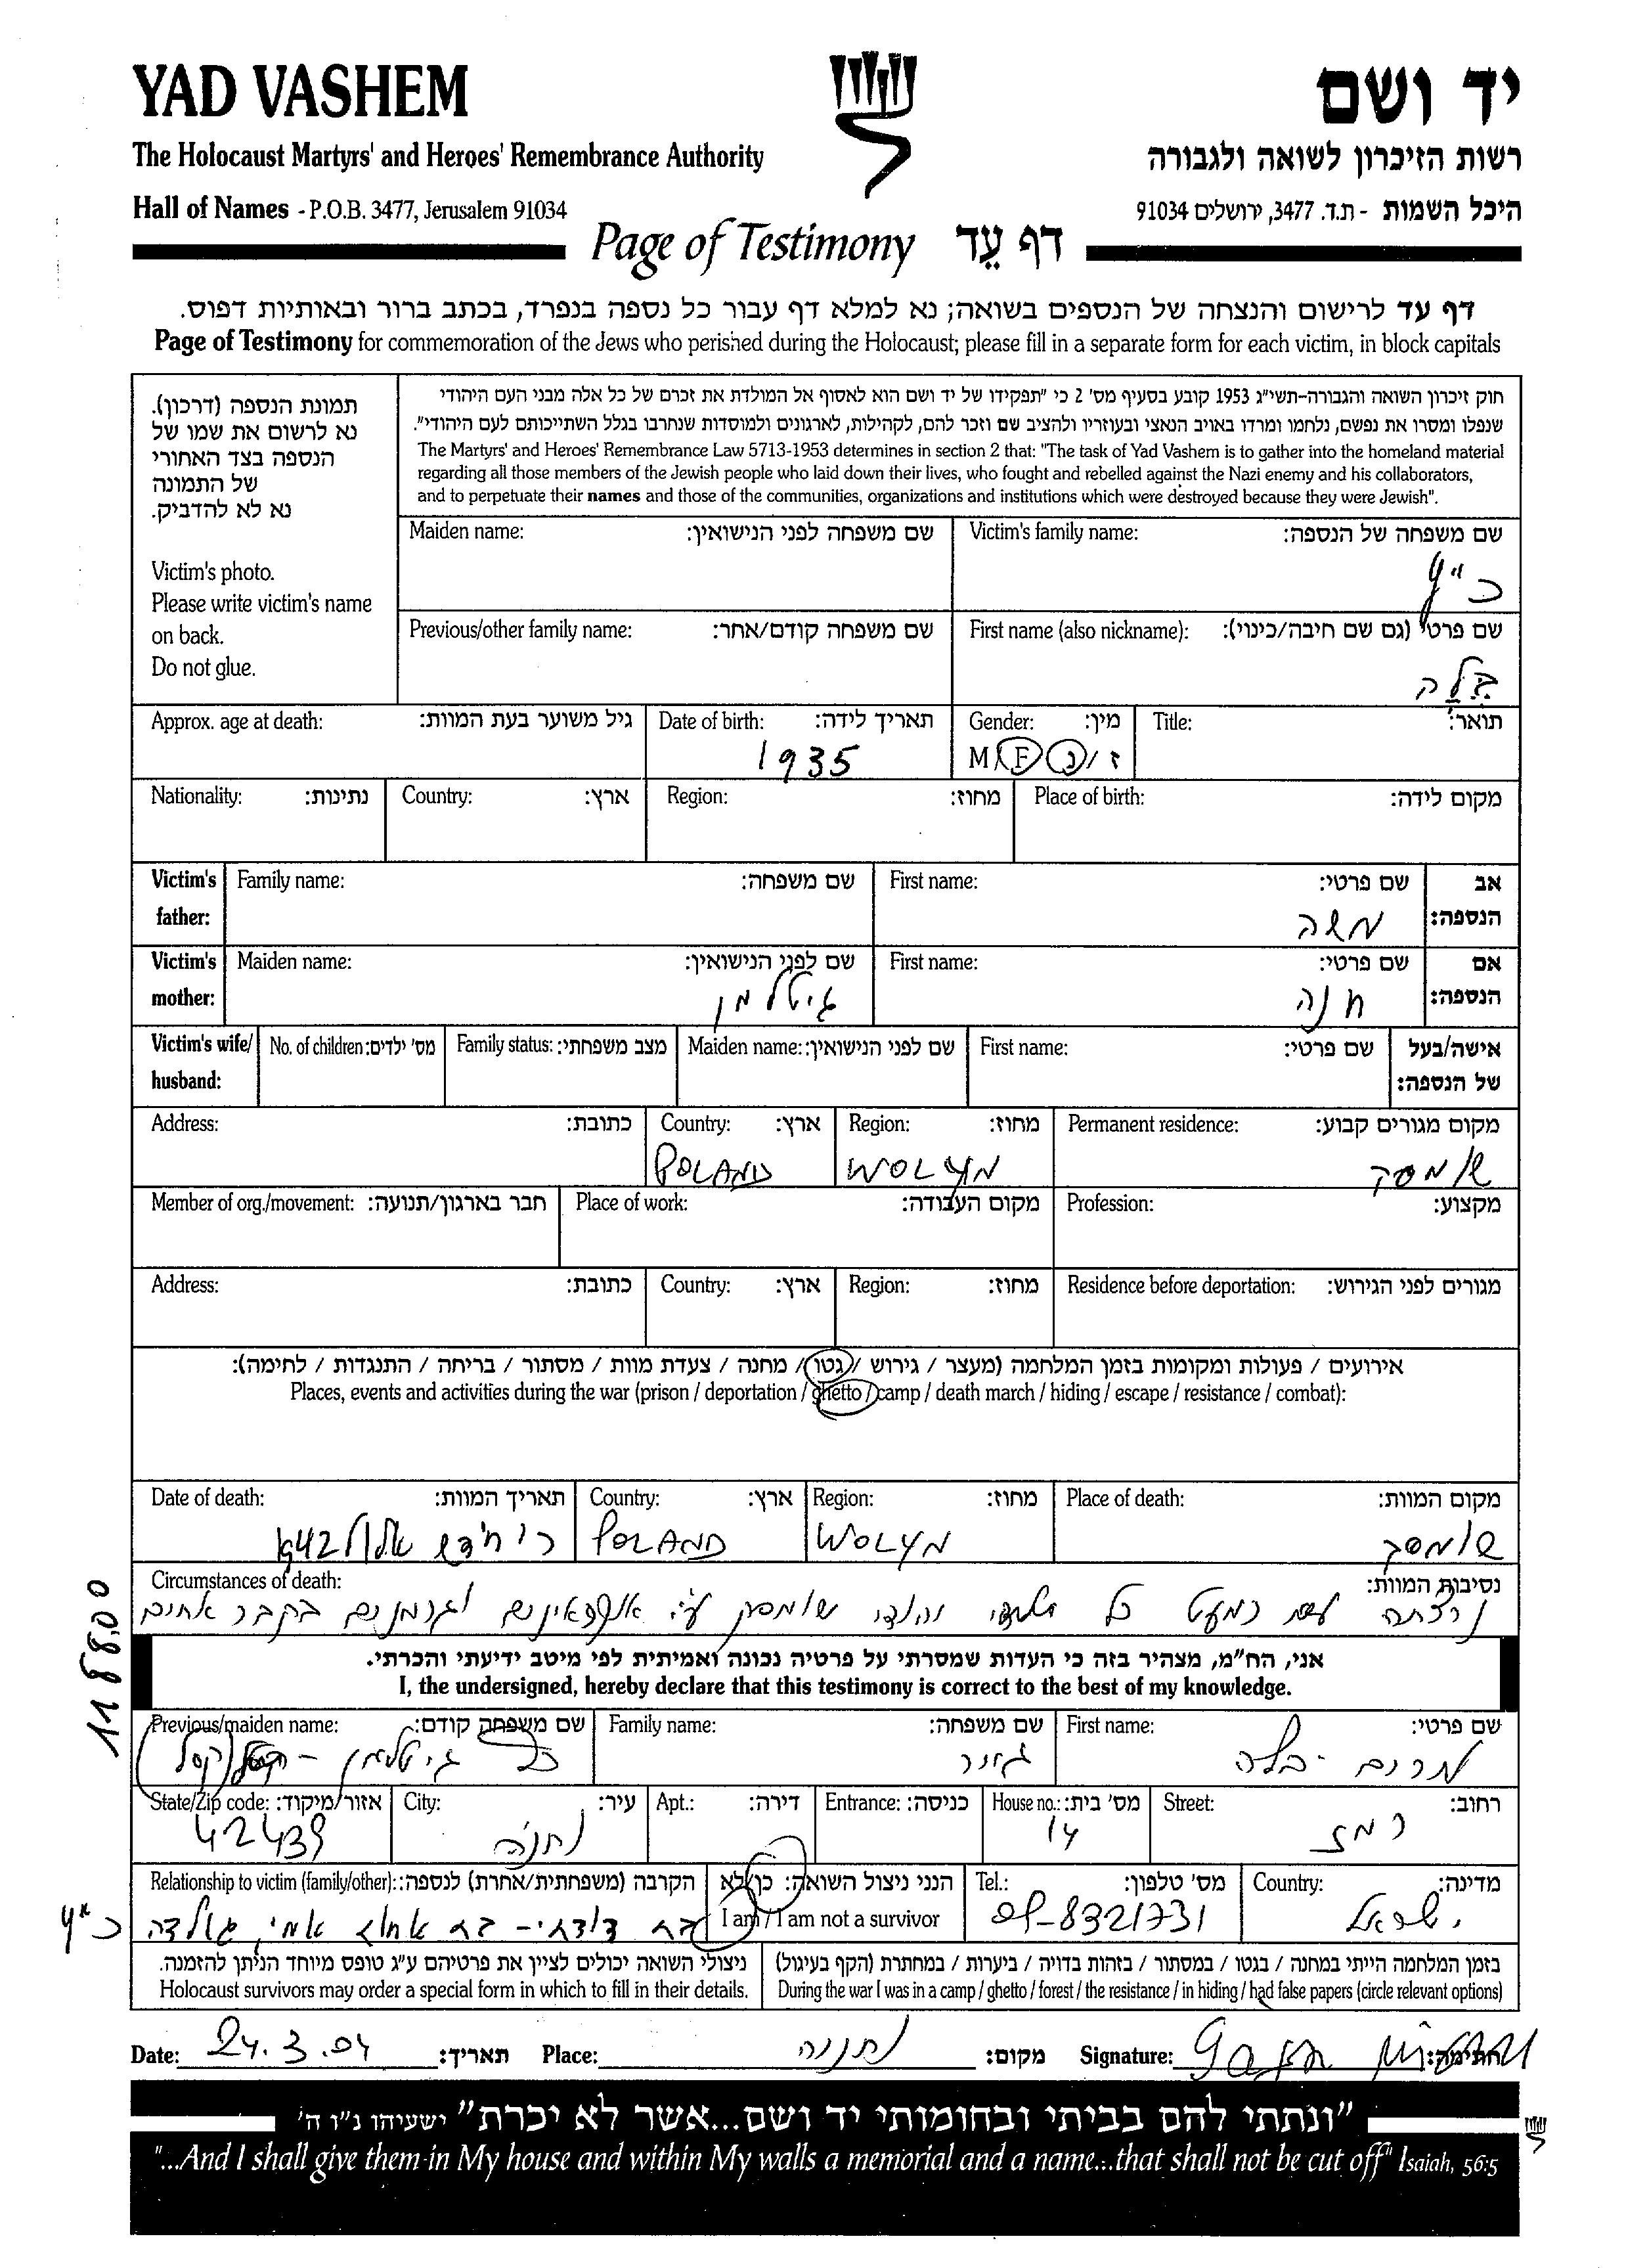 YAD VASHEM
יד ושם
The Holocaust Martyrs' and Heroes' Remembrance Authority
רשות הזיכרון לשואה ולגבורה
Hall of Names - P.O.B. 3477, Jerusalem 91034
היכל השמות - ת.ד. 3477, ירושלים 91034
Page of Testimony דף עֵד
דף עד לרישום והנצחה של הנספים בשואה; נא למלא דף עבור כל נספה בנפרד, בכתב ברור ובאותיות דפוס.
Page of Testimony for commemoration of the Jews who perished during the Holocaust; please fill in a separate form for each victim, in block capitals
תמונת הנספה (דרכון).
נא לרשום את שמו של
הנספה בצד האחורי
של התמונה
נא לא להדביק.
Victim's photo.
Please write victim's name
on back.
Do not glue.
חוק זיכרון השואה והגבורה-תשי"ג 1953 קובע בסעיף מס' 2 כי "תפקידו של יד ושם הוא לאסוף אל המולדת את זכרם של כל אלה מבני העם היהודי
שנפלו ומסרו את נפשם, נלחמו ומרדו באויב הנאצי ובעוזריו ולהציב שם וזכר להם, לקהילות, לארגונים ולמוסדות שנחרבו בגלל השתייכותם לעם היהודי".
The Martyrs' and Heroes' Remembrance Law 5713-1953 determines in section 2 that: "The task of Yad Vashem is to gather into the homeland material
regarding all those members of the Jewish people who laid down their lives, who fought and rebelled against the Nazi enemy and his collaborators,
and to perpetuate their names and those of the communities, organizations and institutions which were destroyed because they were Jewish".
Victim's family name: שם משפחה של הנספה:
כ"ץ
Maiden name: שם משפחה לפני הנישואין:
First name (also nickname): שם פרטי (גם שם חיבה/כינוי):
בלה
Previous/other family name: שם משפחה קודם/אחר:
Title: תואר:
Gender: מין:
M/F ז/נ
Date of birth: תאריך לידה:
1935
Approx. age at death: גיל משוער בעת המוות:
Place of birth: מקום לידה:
Region: מחוז:
Country: ארץ:
Nationality: נתינות:
Victim's father: אב הנספה:
First name: שם פרטי:
משה
Family name: שם משפחה:
Victim's mother: אם הנספה:
First name: שם פרטי:
חנה
Maiden name: שם לפני הנישואין:
גיטלמן
Victim's wife/husband: אישה/בעל של הנספה:
First name: שם פרטי:
Maiden name: שם לפני הנישואין:
Family status: מצב משפחתי:
No. of children: מס' ילדים:
Permanent residence: מקום מגורים קבוע:
שומסק
Region: מחוז:
WOLYN
Country: ארץ:
POLAND
Address: כתובת:
Profession: מקצוע:
Place of work: מקום העבודה:
Member of org./movement: חבר בארגון/תנועה:
Residence before deportation: מגורים לפני הגירוש:
Region: מחוז:
Country: ארץ:
Address: כתובת:
אירועים / פעולות ומקומות בזמן המלחמה (מעצר / גירוש / גטו / מחנה / צעדת מוות / מסתור / בריחה / התנגדות / לחימה):
Places, events and activities during the war (prison / deportation / ghetto / camp / death march / hiding / escape / resistance / combat):
Place of death: מקום המוות:
שומסק
Region: מחוז:
WOLYN
Country: ארץ:
POLAND
Date of death: תאריך המוות:
חודש אלול 1942
Circumstances of death: נסיבות המוות:
נרצחה עם כמעט כל יהודי שומסק ע"י אוקראינים וגרמנים בקבר אחים
118800
אני, הח"מ, מצהיר בזה כי העדות שמסרתי על פרטיה נכונה ואמיתית לפי מיטב ידיעתי והכרתי.
I, the undersigned, hereby declare that this testimony is correct to the best of my knowledge.
First name: שם פרטי:
מרים - בלה
Family name: שם משפחה:
גזונר
Previous/maiden name: שם משפחה קודם:
גיטלמן -
Street: רחוב:
רמז
House no.: מס' בית:
14
Entrance: כניסה:
Apt.: דירה:
City: עיר:
נתניה
State/Zip code: אזור/מיקוד:
42439
Country: מדינה:
ישראל
Tel.: מס' טלפון:
09-8321731
הנני ניצול השואה: כן/לא
I am / I am not a survivor
Relationship to victim (family/other): הקרבה (משפחתית/אחרת) לנספה:
בת דודתי - בת אחות אמי, גולדה
כ"ץ
בזמן המלחמה הייתי במחנה / בגטו / במסתור / בזהות בדויה / ביערות / במחתרת (הקף בעיגול)
During the war I was in a camp / ghetto / forest / the resistance / in hiding / had false papers (circle relevant options)
ניצולי השואה יכולים לציין את פרטיהם ע"ג טופס מיוחד הניתן להזמנה.
Holocaust survivors may order a special form in which to fill in their details.
Date: 24.3.04 תאריך: Place: נתניה מקום: Signature: חתימה:
"ונתתי להם בביתי ובחומותי יד ושם...אשר לא יכרת" ישעיהו נ"ו ה'
"...And I shall give them in My house and within My walls a memorial and a name...that shall not be cut off" Isaiah, 56:5